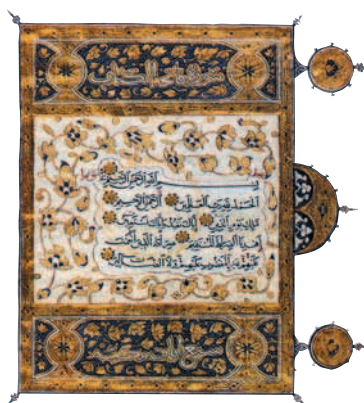 فاتحة الكتاب
بسم الله الرحمن الرحيم
الحمد لله رب العلمين الرحمن الرحيم
ملك يوم الدين إياك نعبد وإياك نستعين
اهدنا الصراط المستقيم صراط الذين أنعمت
عليهم غير المغضوب عليهم ولا الضالين
سبع آيات